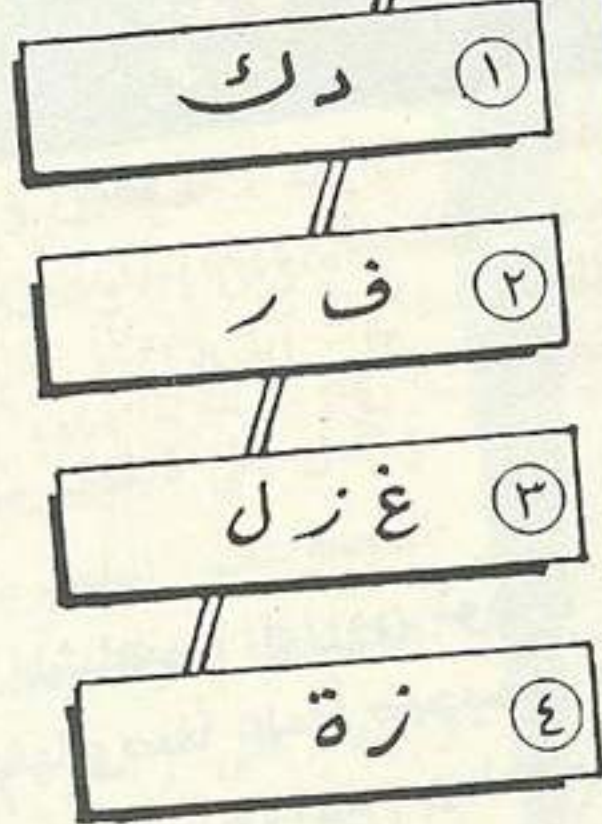 ١ د ك
٢ ف ر
٣ غ ز ل
٤ ز ة